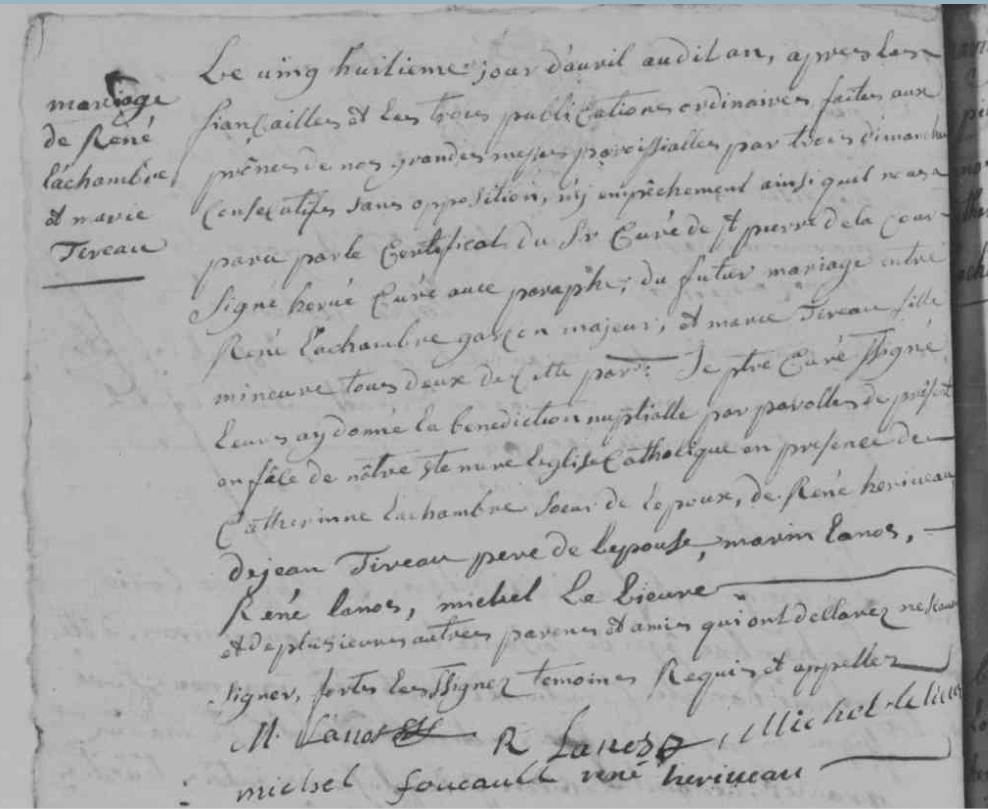 mariage
de René
lachambre
et marie
Tireau
Le uing huitieme jour d'auril audit an, apres les
fiançailles et les trois publications ordinaires faites aux
prônes de nos grandes messes paroissialles par trois dimanches
Consecutifs sans opposition, ny empêchement ainsi quil nous a
paru par le Certificat du Sr Curé de St pierre de la Cour
Signé herué Curé auec paraphe; du futur mariage entre
René Lachambre garçon majeur, et marie Tireau fille
mineure tous deux de Cette parr: Je ptre Curé ssigné
leurs ay donné la benediction nuptialle par parolles de présent
en fâce de nôtre ste mere Leglise Catholique en presence de
Catherinne Lachambre soeur de Lepoux, de René heriueau
de jean Tireau pere de Lepouse, marin Lanos,
René lanos, michel Le Lieure
et de plusieures autres parens et amis qui ont dellarez ne scauoir
signer, fortes les ssignez temoines Requis et appellez
M. Lanos R Lanos, Michel le lieure
michel foucault rené heriueau